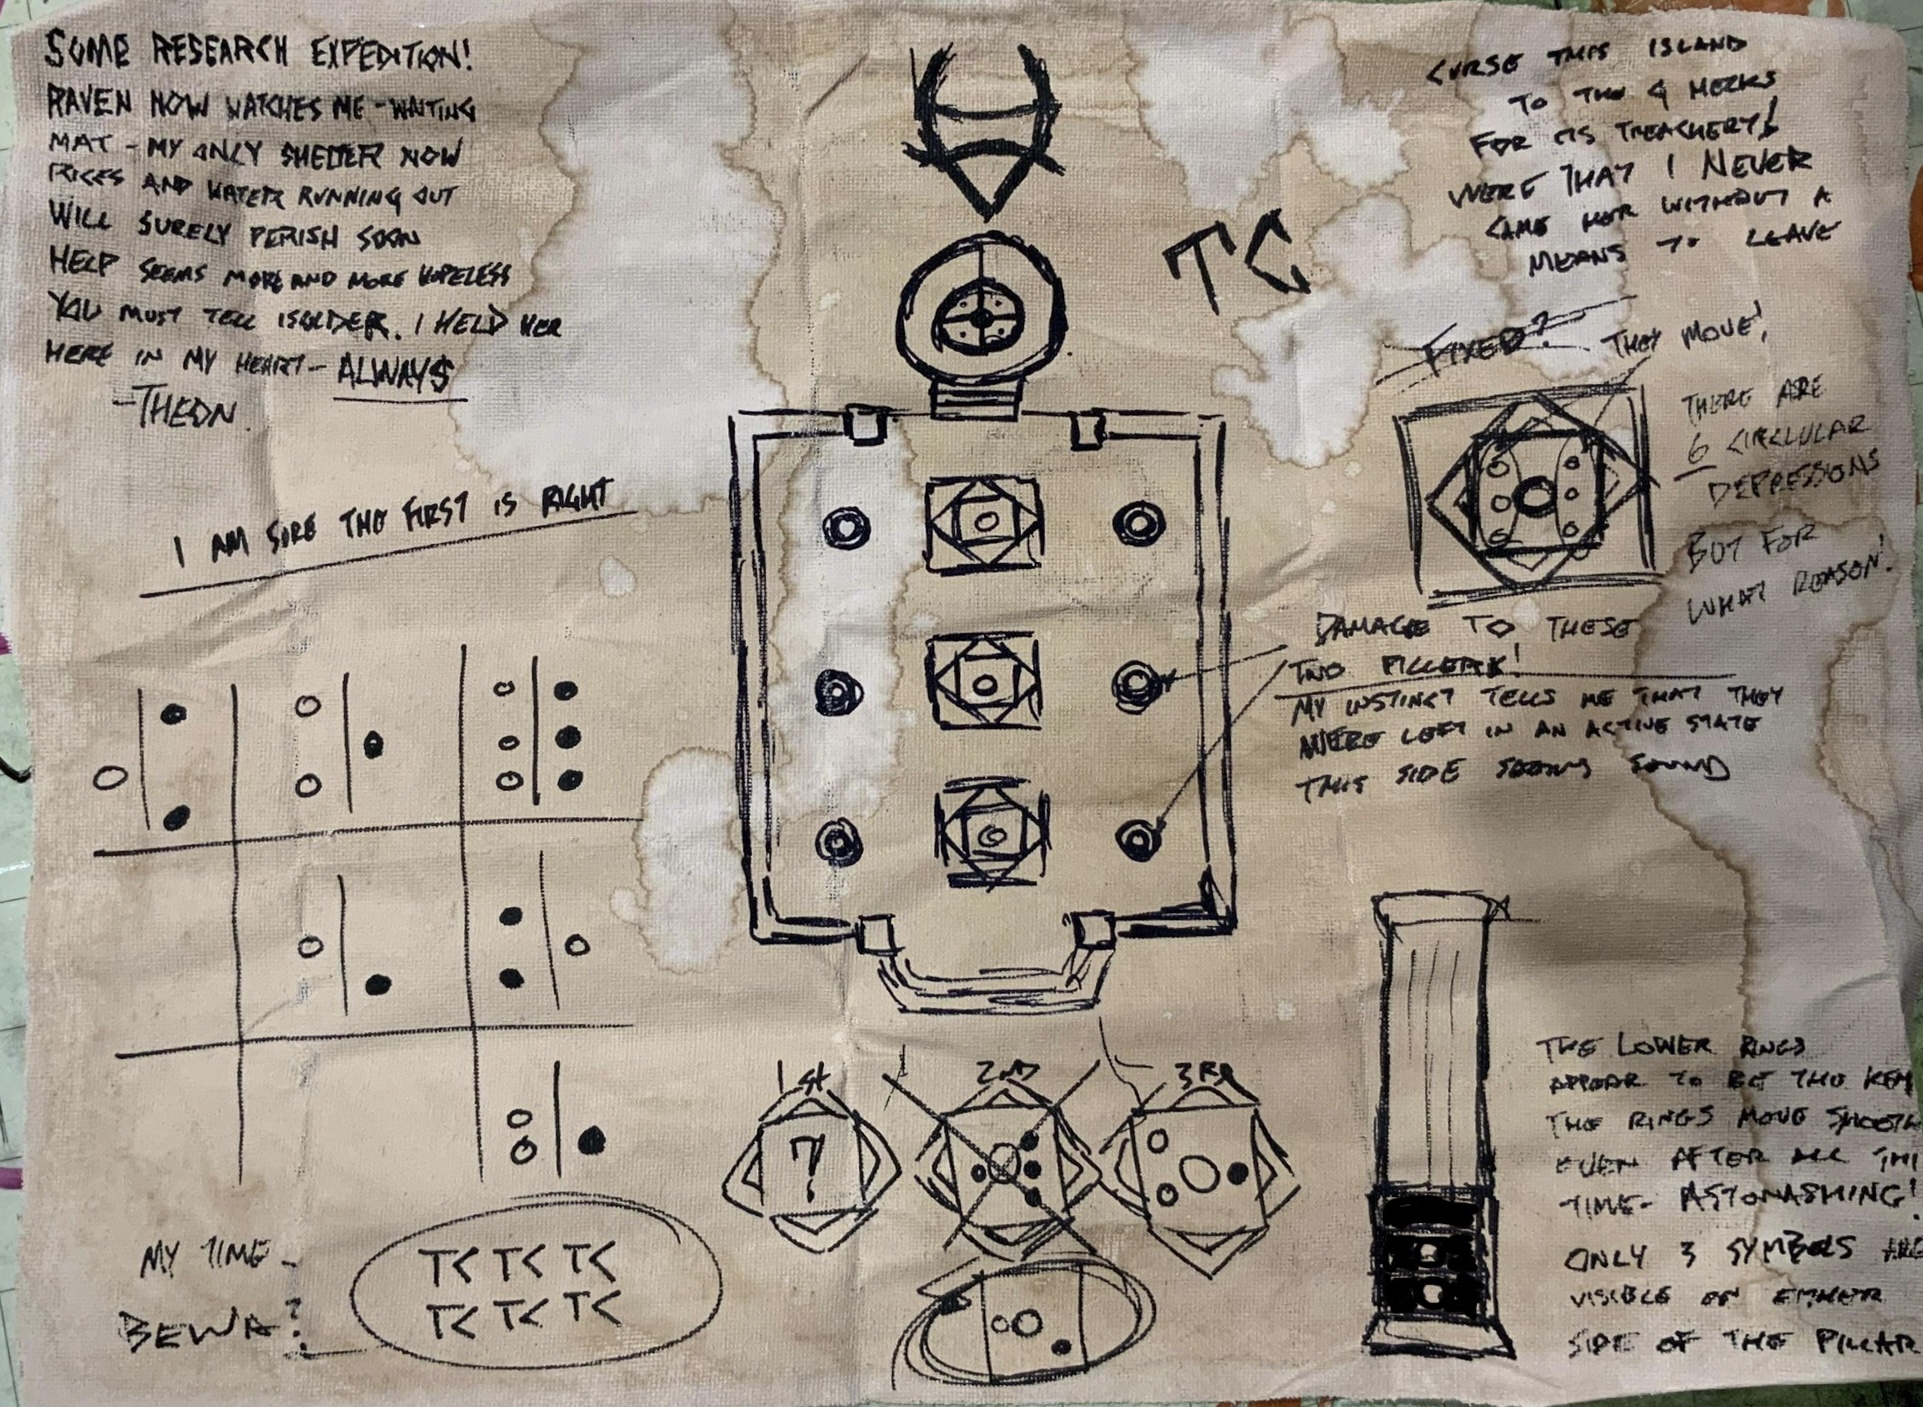 SOME RESEARCH EXPEDITION!
RAVEN NOW WATCHES ME - WAITING
MAT - MY ONLY SHELTER NOW
AND WATER RUNNING OUT
WILL SURELY PERISH SOON
HELP SEEMS MORE AND MORE HOPELESS
YOU MUST TELL ISOLDER. I HELD HER
HERE IN MY HEART - ALWAYS
-THEON
CURSE THIS ISLAND
TO THE 9 HERKS
FOR ITS TREACHERY!
WERE THAT I NEVER
CAME HER WITHOUT A
MEANS TO LEAVE
TC
FIXED? THEY MOVE!
THERE ARE
6 CIRCLULAR
DEPRESSIONS
BUT FOR
WHAT REASON!
I AM SURE THE FIRST IS RIGHT
DAMAGE TO THESE
TWO
MY INSTINCT TELLS ME THAT THEY
WERE LEFT IN AN ACTIVE STATE
THIS SIDE SEEMS SOUND
1ST 2ND 3RD
?
THE LOWER RINGS
APPEAR TO BE THE KEY
THE RINGS MOVE SMOOTH
EVEN AFTER ALL THI
TIME - ASTONASHING!
ONLY 3 SYMBOLS ARE
VISIBLE ON EITHER
SIDE OF THE PILLAR
MY TIME -
BEWA?
T< T< T<
T< T< T<